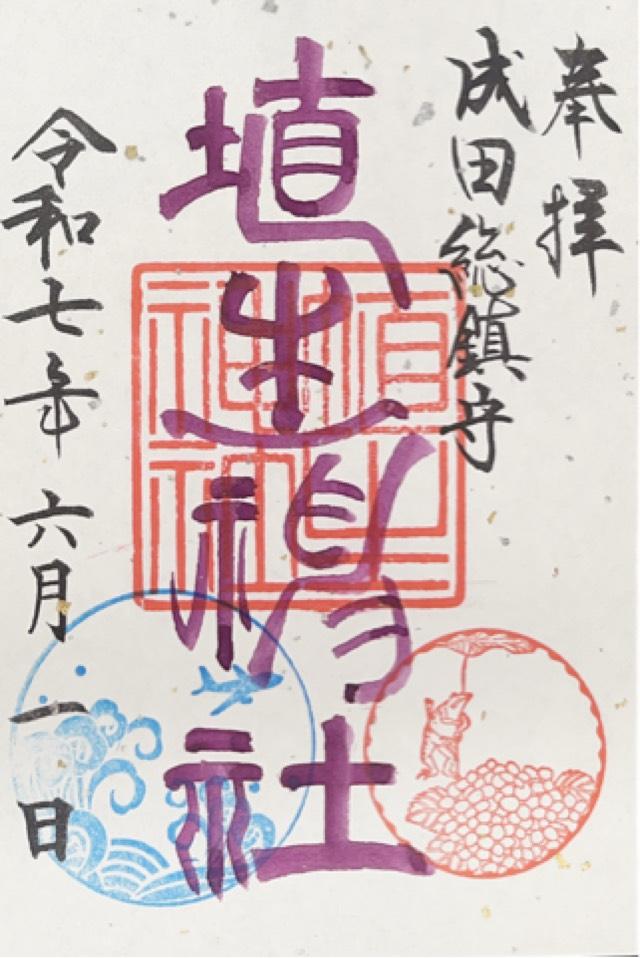 奉拝
成田総鎮守
埴生神社
令和七年六月一日
埴生神社